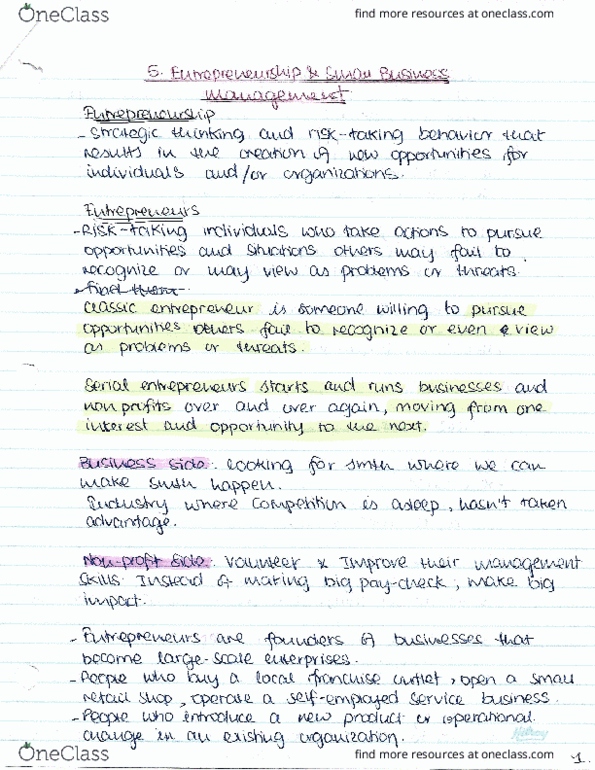 OneClass
find more resources at oneclass.com
5. Entrepreneurship & Small Business
Management
Entrepreneurship
- Strategic thinking and risk-taking behavior that
results in the creation of new opportunities for
individuals and/or organizations.
Entrepreneurs
- Risk-taking individuals who take actions to pursue
opportunities and situations others may fail to
recognize or may view as problems or threats.
- find them
Classic entrepreneur is someone willing to pursue
opportunities others fail to recognize or even view
as problems or threats.
Serial entrepreneurs starts and runs businesses and
nonprofits over and over again, moving from one
interest and opportunity to the next.
Business side: looking for smth where we can
make smth happen.
Industry where competition is asleep, hasn't taken
advantage.
Non-profit side: volunteer & improve their management
skills. Instead of making big pay-check, make big
impact.
- Entrepreneurs are founders of businesses that
become large-scale enterprises.
- People who buy a local franchise outlet, open a small
retail shop, operate a self-employed service business.
- People who introduce a new product or operational
change in an existing organization.
Hilroy
1
OneClass
find more resources at oneclass.com